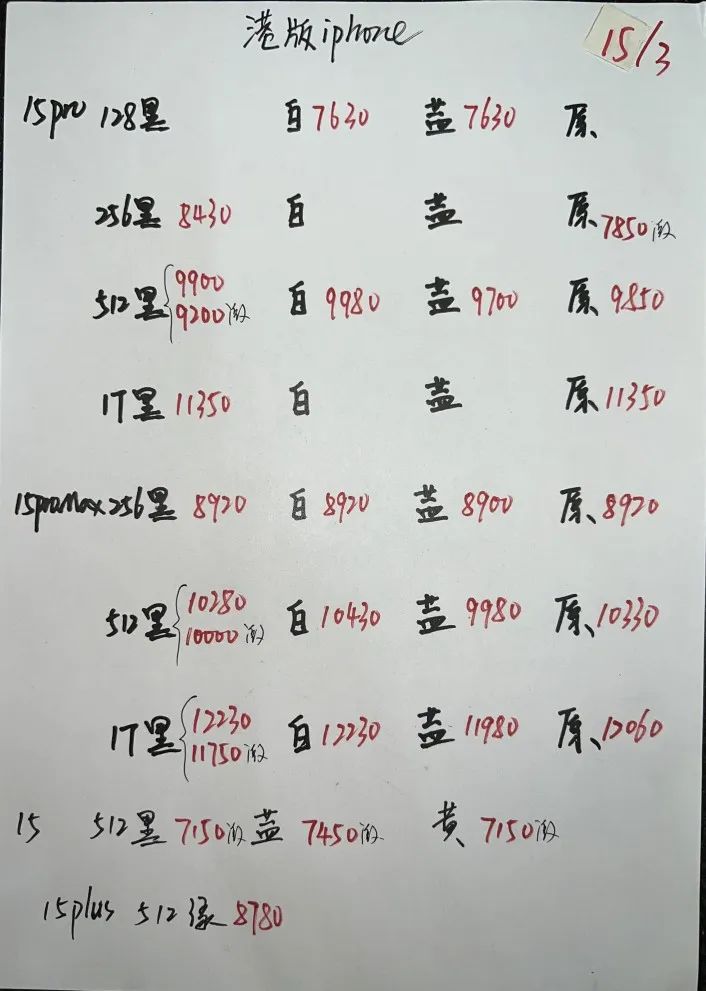 港版iphone
15/3
15pro 128黑 白7630 蓝7630 原
256黑 8430 白 蓝 原 7850激
512黑{9900 9200激 白 9980 蓝 9700 原 9850
1T黑 11350 白 蓝 原 11350
15proMax 256黑 8920 白 8920 蓝 8900 原 8920
512黑{10280 10000激 白 10430 蓝 9980 原 10330
1T黑{12230 11750激 白 12230 蓝 11980 原 12060
15 512黑 7150激 蓝 7450激 黄 7150激
15plus 512绿 8780